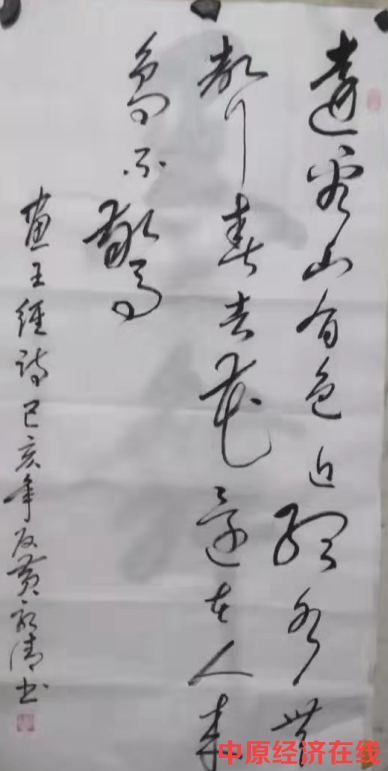 遠看山有色近聽水無
聲春去花還在人來
鳥不驚
畫王維詩己亥年黃清书
中原经济在线